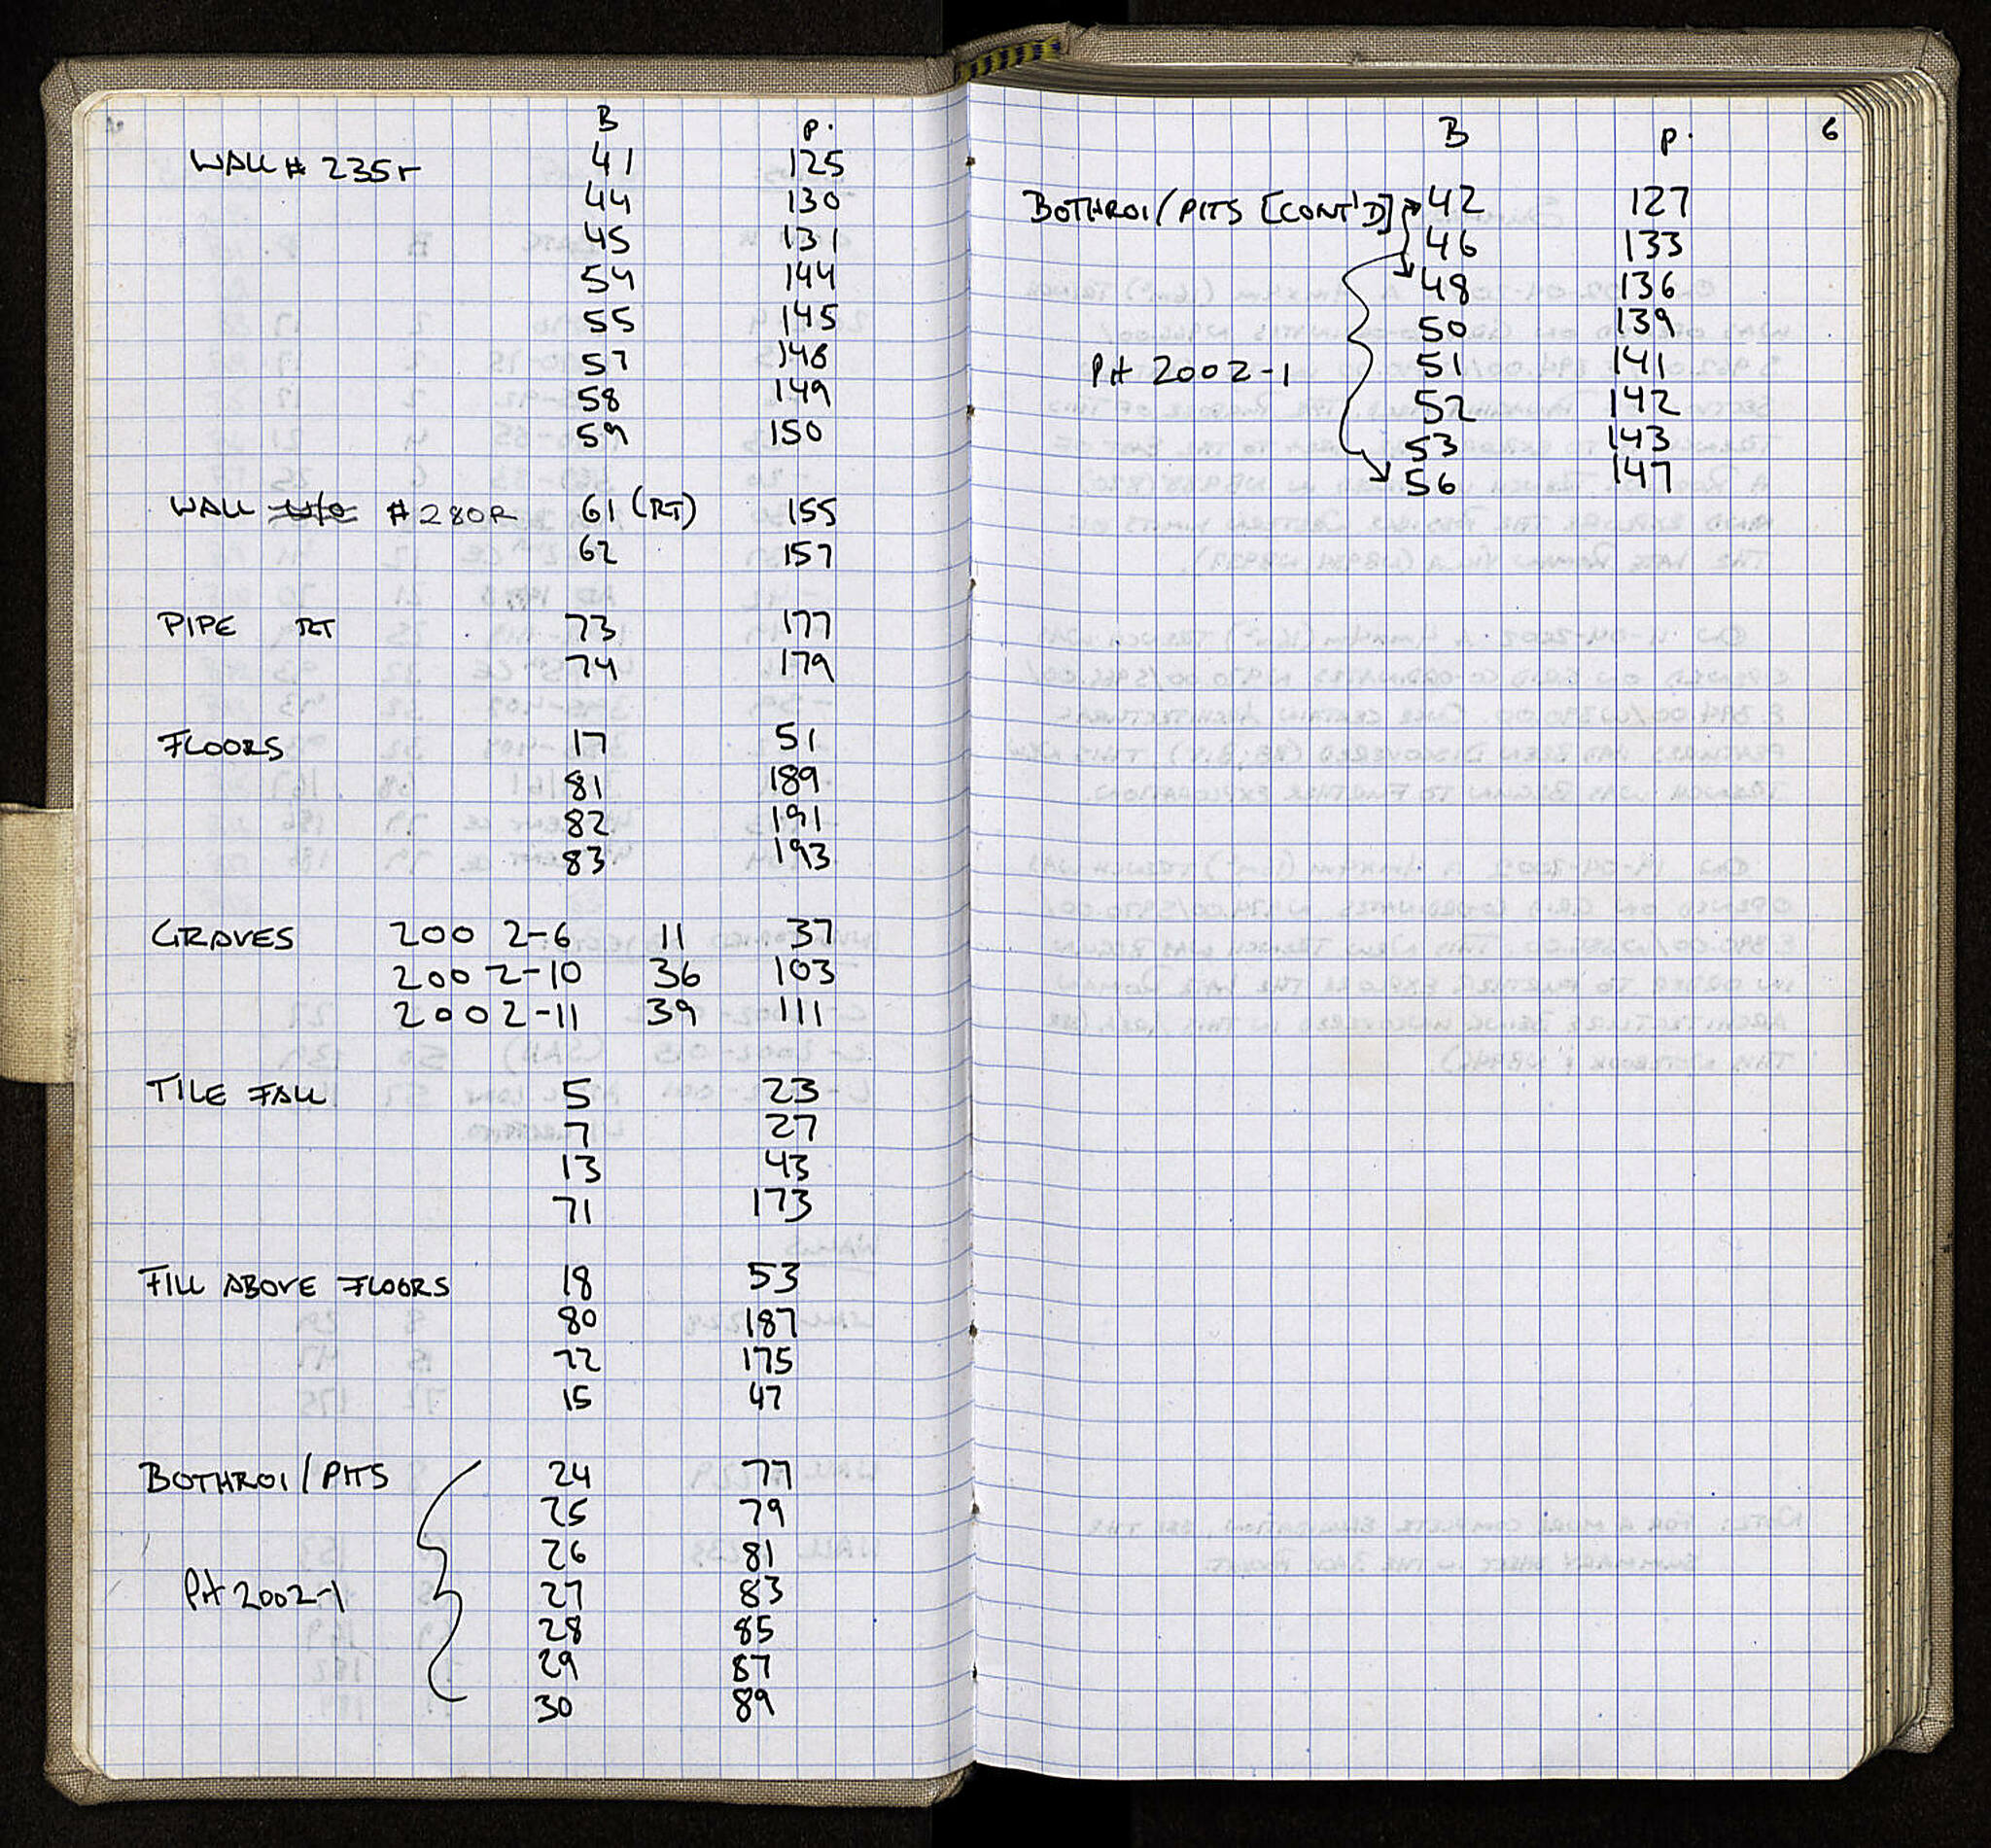 B p.
WALL # 235r 41 125
44 130
45 131
54 144
55 145
57 148
58 149
59 150
WALL # 280R 61 (RT) 155
62 157
PIPE RT 73 177
74 179
FLOORS 17 51
81 189
82 191
83 193
GRAVES 2002-6 11 37
2002-10 36 103
2002-11 39 111
TILE FALL 5 23
7 27
13 43
71 173
FILL ABOVE FLOORS 18 53
80 187
72 175
15 47
BOTHROI/PITS 24 77
25 79
26 81
PH 2002-1 27 83
28 85
29 87
30 89
B p. 6
BOTHROI/PITS [CONT'D] 42 127
46 133
48 136
50 139
PH 2002-1 51 141
52 142
53 143
56 147